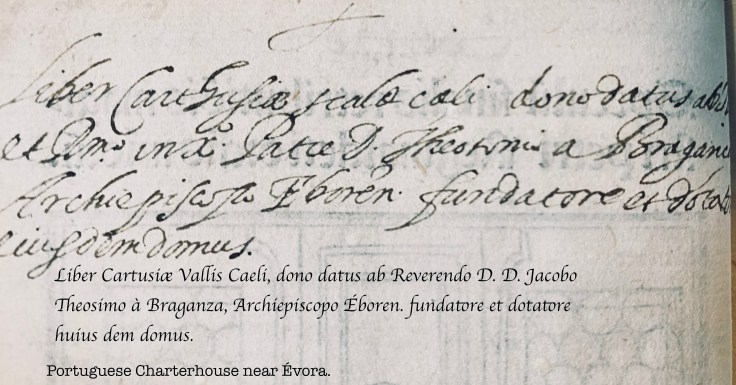 Liber Cartusiæ scalæ cæli dono datus ab
et Rmo. in X. Patre D. Theotonio a Bragan
Archiepiscopo Eboren. fundatore et dota
eiusdem domus.
Liber Cartusiæ Vallis Caeli, dono datus ab Reverendo D. D. Jacobo
Theosimo à Braganza, Archiepiscopo Éboren. fundatore et dotatore
huius dem domus.
Portuguese Charterhouse near Évora.